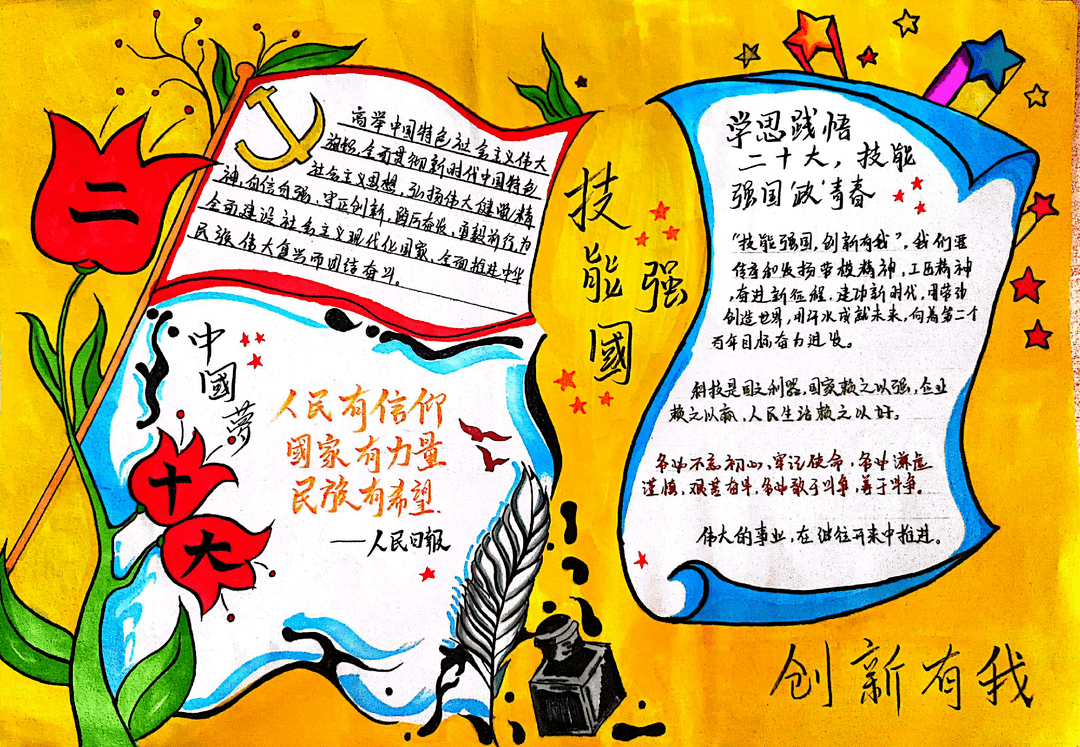 二
十
大
高举中国特色社会主义伟大
旗帜,全面贯彻新时代中国特色
社会主义思想,弘扬伟大建党精
神,自信自强、守正创新,踔厉奋发、勇毅前行,为
全面建设社会主义现代化国家、全面推进中华
民族伟大复兴而团结奋斗。
中國夢
人民有信仰
國家有力量
民族有希望.
——人民日报
技能強國
学思践悟
二十大,技能
强国政青春
“技能强国,创新有我”,我们要
传承和发扬劳模精神,工匠精神
,奋进新征程,建功新时代,用劳动
创造世界,用汗水成就未来,向着第二个
百年目标奋力进发。
科技是国之利器,国家赖之以强,企业
赖之以赢,人民生活赖之以好。
务必不忘初心,牢记使命,务必谦虚
谨慎,艰苦奋斗,务必敢于斗争,善于斗争。
伟大的事业,在继往开来中推进。
创新有我